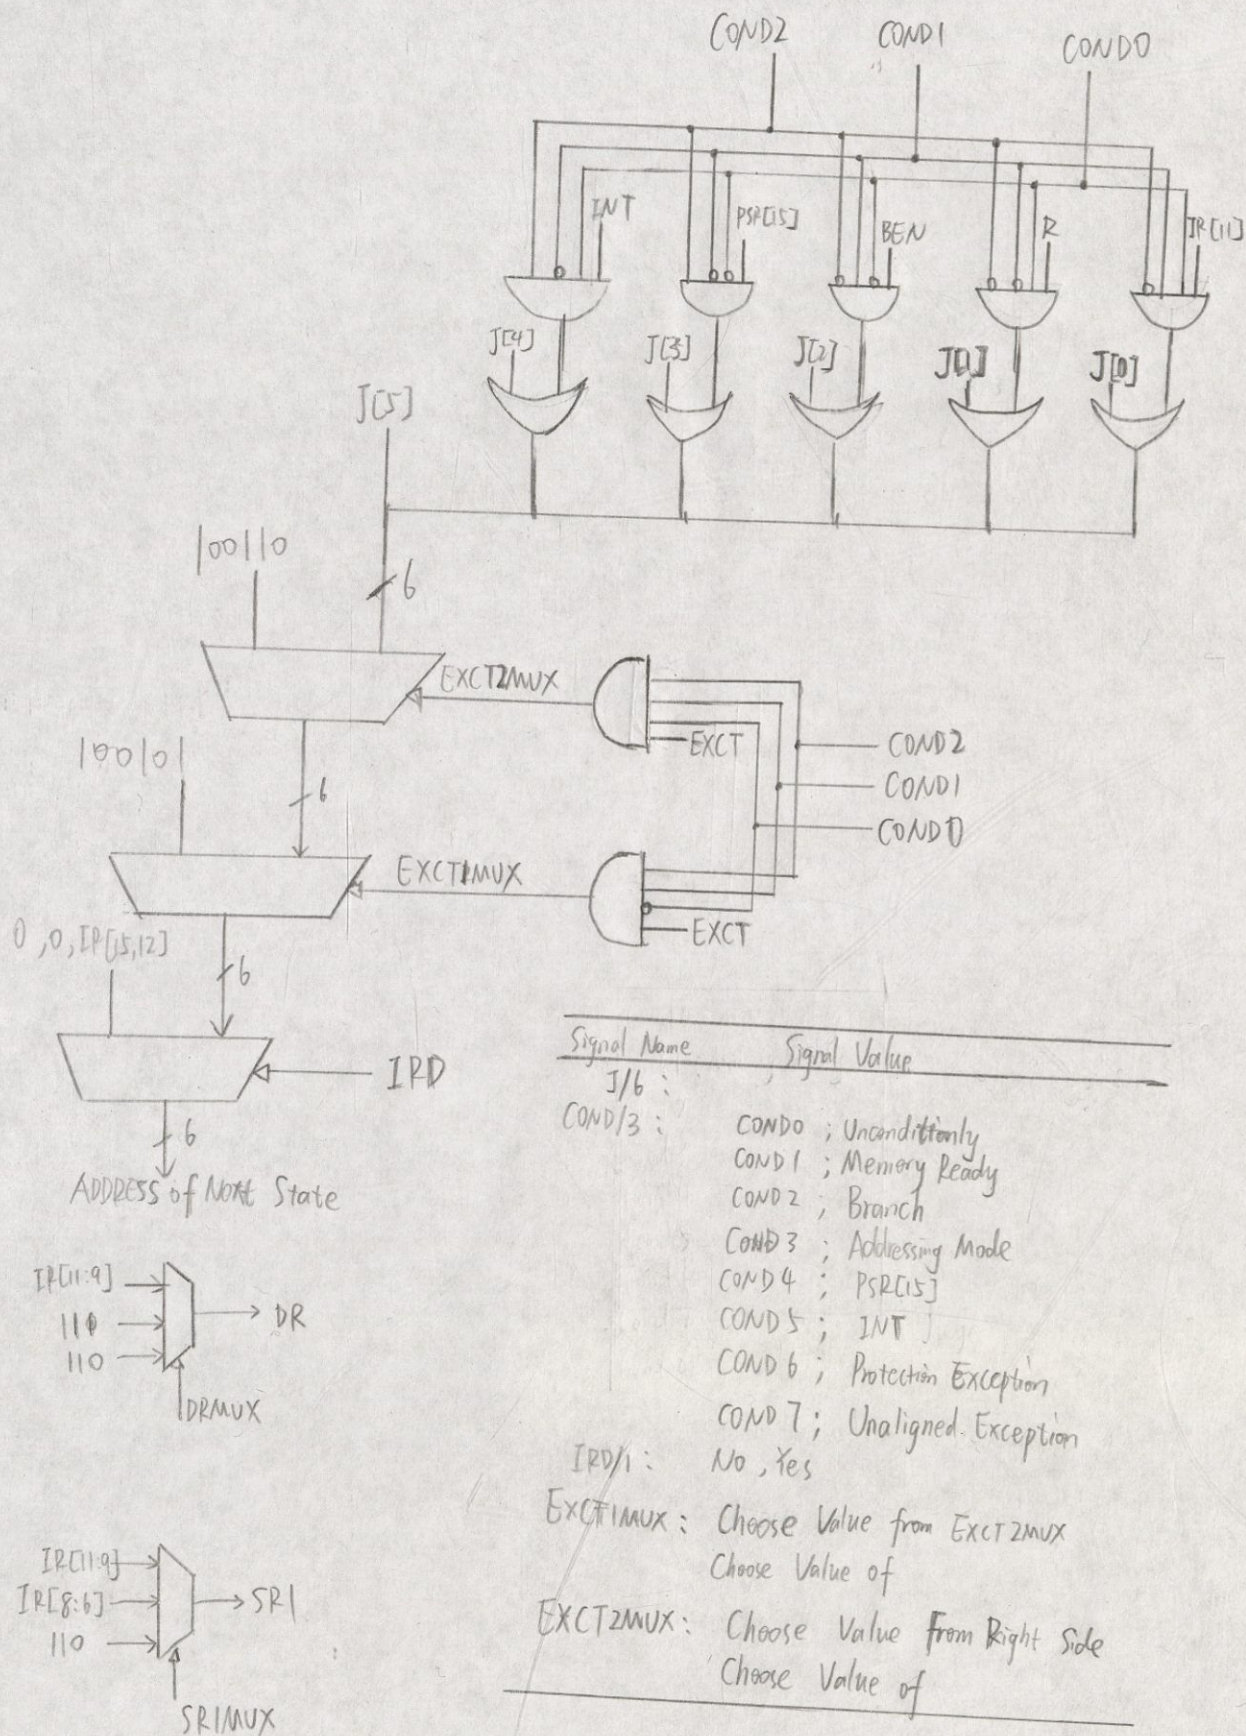 COND2 COND1 COND0
INT PSR[15] BEN R IR[11]
J[4] J[3] J[2] J[1] J[0]
J[5]
100110
6
EXCT2MUX
EXCT
COND2
COND1
COND0
100101
6
EXCT1MUX
EXCT
0,0,IR[15,12]
6
IRD
6
ADDRESS of Next State
IR[11:9]
110
110
DR
DRMUX
IR[11:9]
IR[8:6]
110
SR1
SR1MUX
Signal Name Signal Value
J/6 :
COND/3 : COND0 ; Unconditionly
COND1 ; Memory Ready
COND2 ; Branch
COND3 ; Addressing Mode
COND4 ; PSR[15]
COND5 ; INT
COND6 ; Protection Exception
COND7 ; Unaligned Exception
IRD/1 : No , Yes
EXCT1MUX : Choose Value from EXCT2MUX
Choose Value of
EXCT2MUX : Choose Value From Right Side
Choose Value of